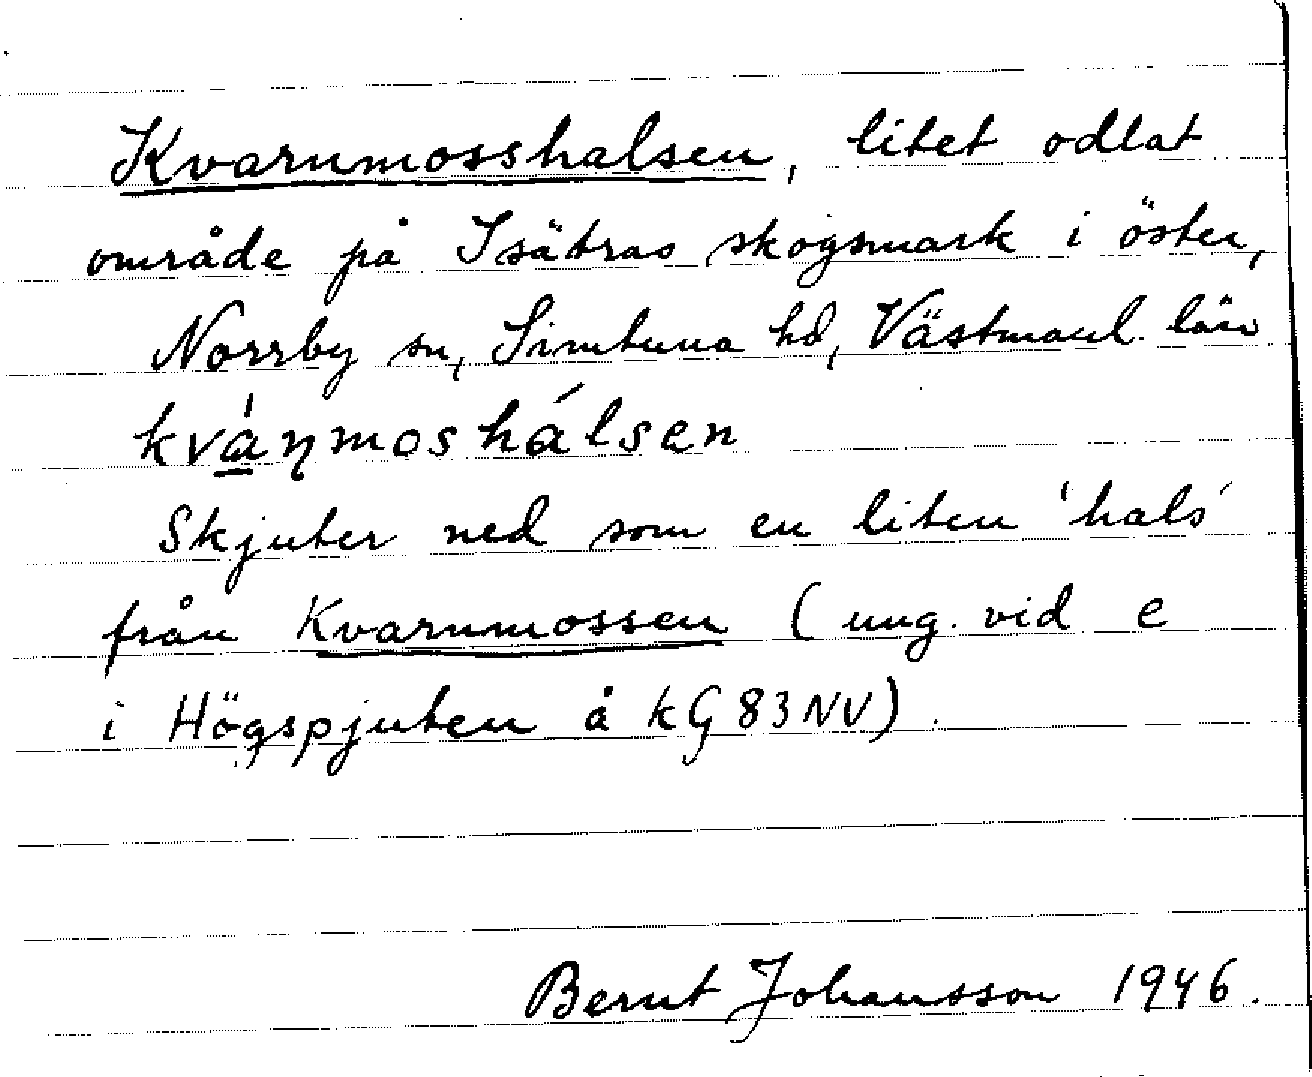 Kvarnmosshalsen, litet odlat
område på Isätras skogsmark i öster,
Norrby sn, Simtuna hd, Västmanl. län
kvàɳmoshálsen
Skjuter ned som en liten 'hals'
från Kvarnmossen (ung. vid e
i Högspjuten å kG83NV).
Bernt Johansson 1946.